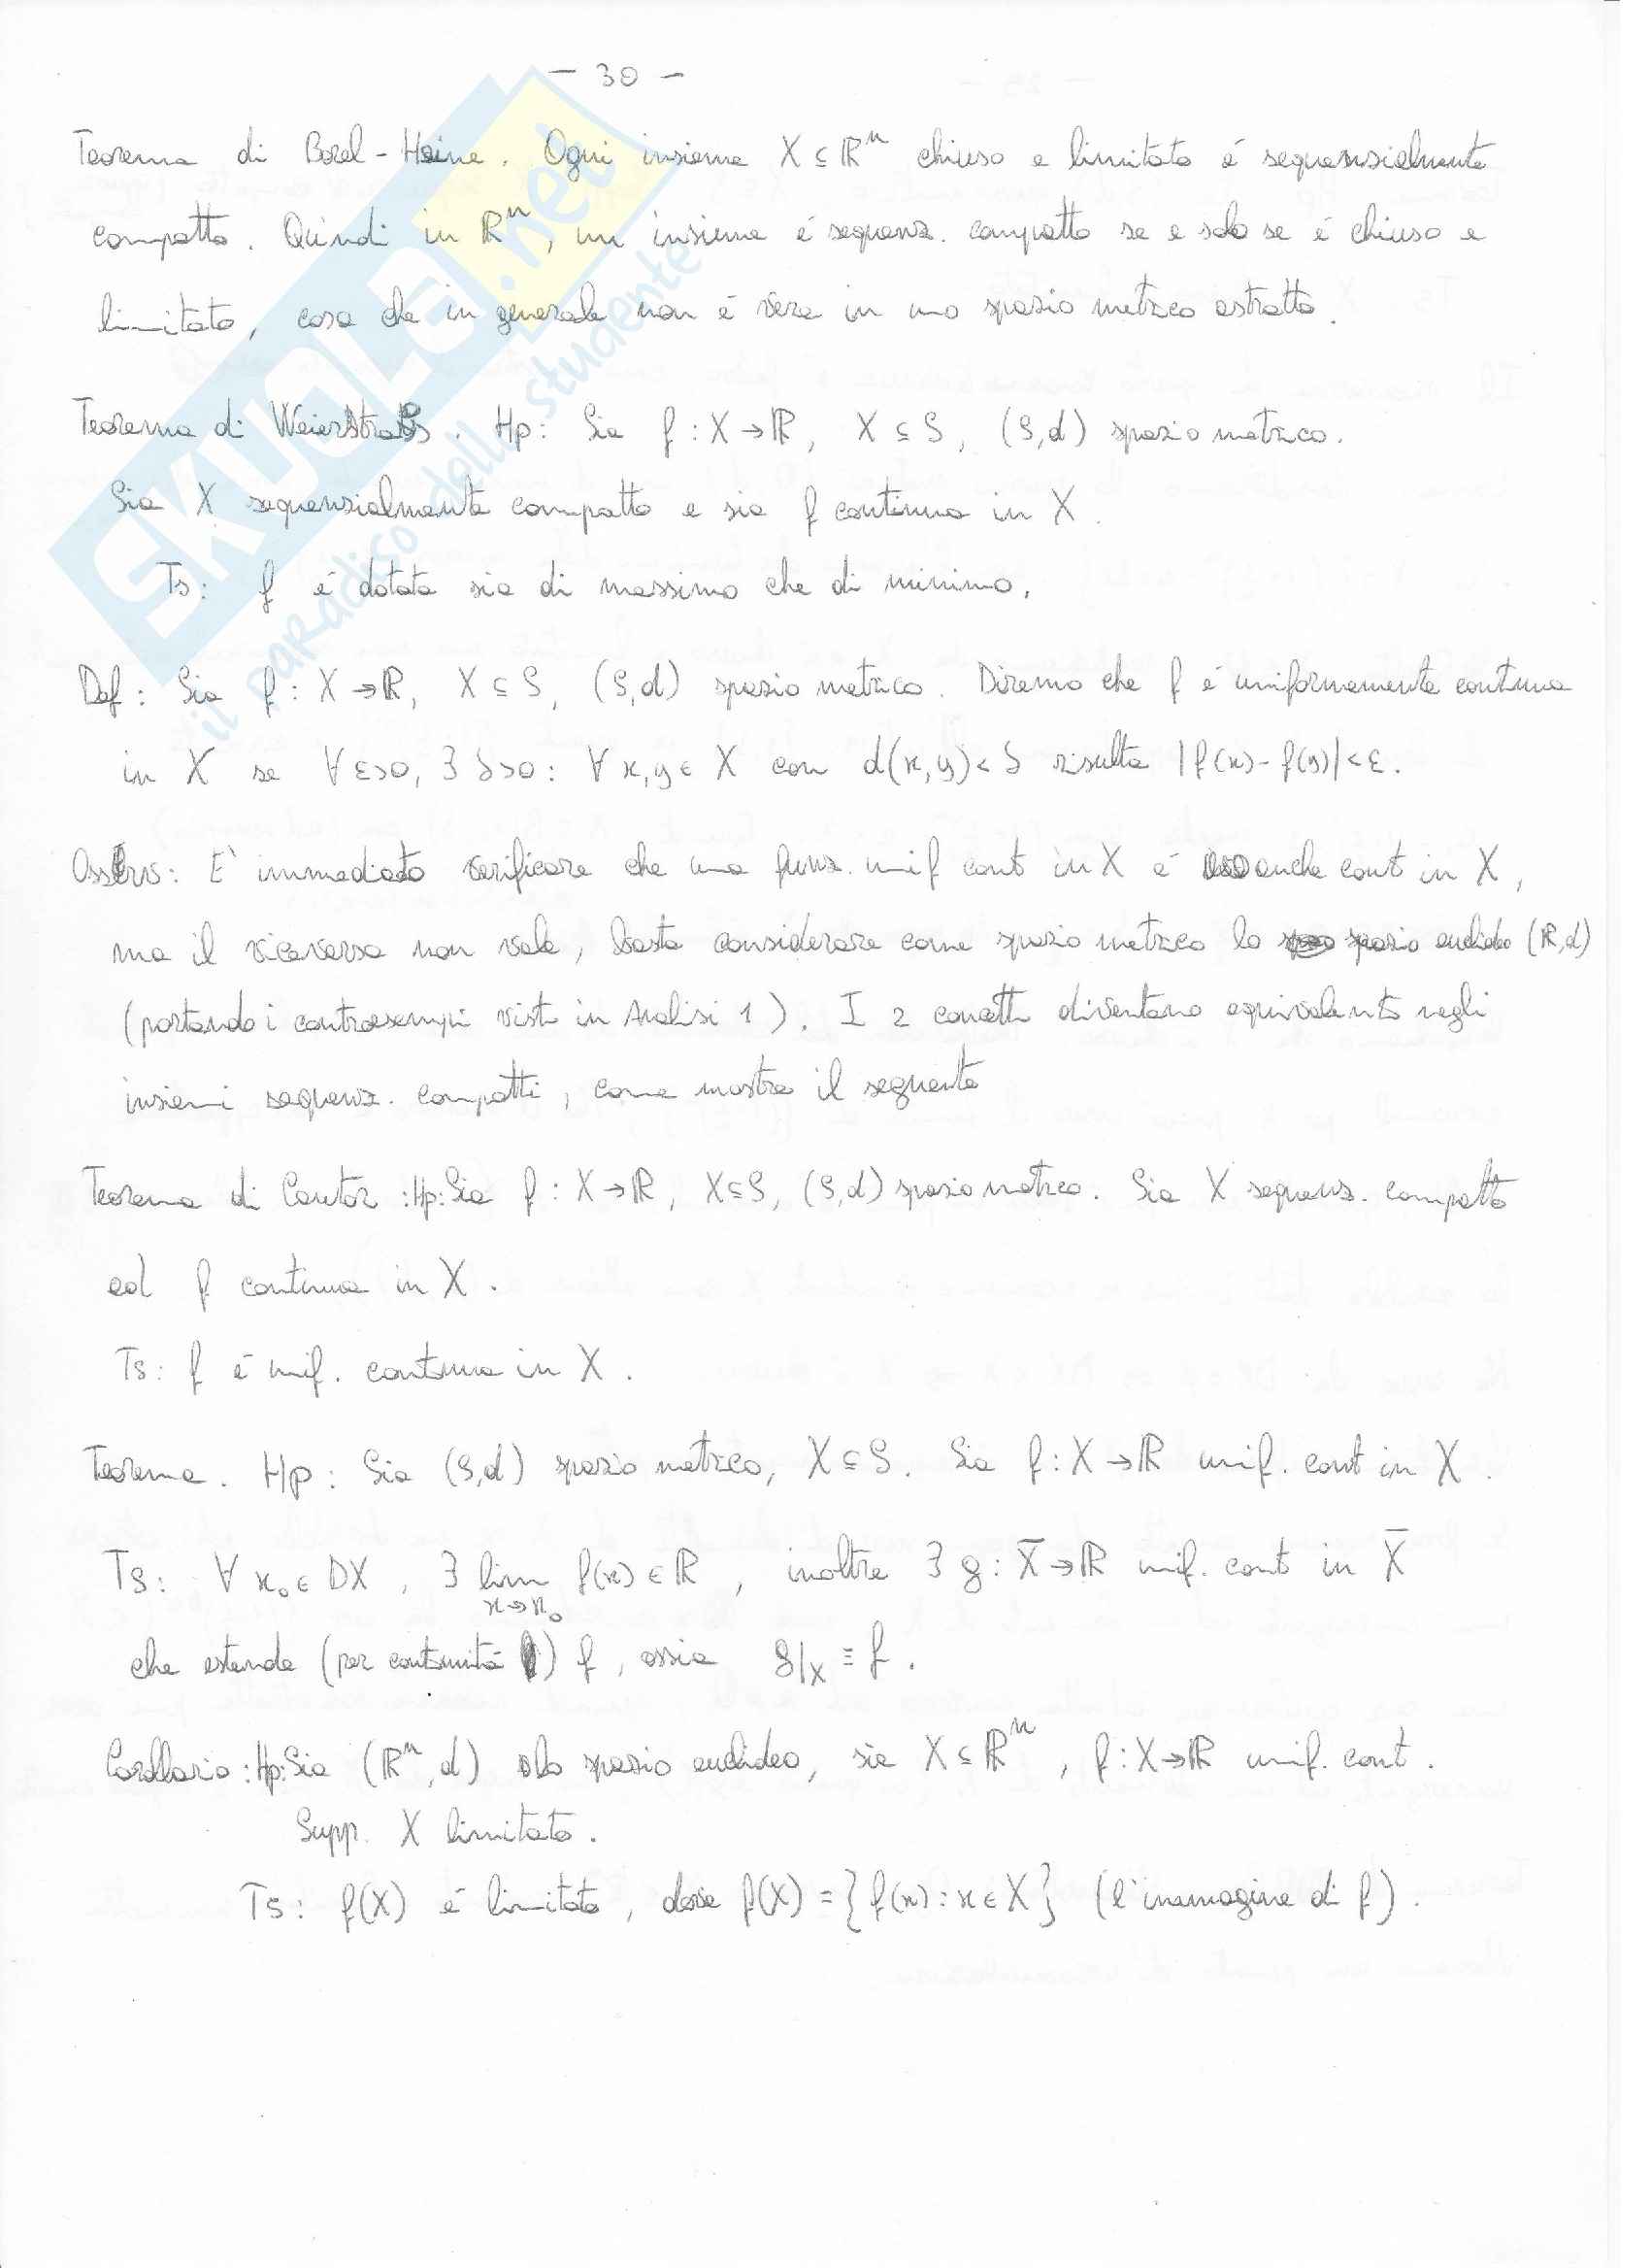 - 30 -
Teorema di Borel-Heine. Ogni insieme X ⊆ ℝⁿ chiuso e limitato é sequenzialmente
compatto. Quindi in ℝⁿ, un insieme é sequenz. compatto se e solo se é chiuso e
limitato, cosa che in generale non é vera in uno spazio metrico astratto.
Teorema di Weierstrass. Hp: Sia f: X→ℝ, X ⊆ S, (S,d) spazio metrico.
Sia X sequenzialmente compatto e sia f continua in X.
Ts: f é dotata sia di massimo che di minimo.
Def: Sia f: X→ℝ, X ⊆ S, (S,d) spazio metrico. Diremo che f é uniformemente continua
in X se ∀ε>0, ∃δ>0: ∀x,y ∈ X con d(x,y)<δ risulta |f(x)-f(y)|<ε.
Osserv: E' immediato verificare che una funz. unif cont in X é anche cont in X,
ma il viceversa non vale, basta considerare come spazio metrico lo spazio euclideo (ℝ,d)
(portando i controesempi visti in Analisi 1). I 2 concetti diventano equivalenti negli
insiemi sequenz. compatti, come mostra il seguente
Teorema di Cantor: Hp: Sia f: X→ℝ, X⊆S, (S,d) spazio metrico. Sia X sequenz. compatto
ed f continua in X.
Ts: f é unif. continua in X.
Teorema. Hp: Sia (S,d) spazio metrico, X ⊆ S. Sia f: X→ℝ unif. cont in X.
Ts: ∀x₀ ∈ DX, ∃ lim f(x) ∈ ℝ, inoltre ∃ g: X̄→ℝ unif. cont in X̄
x→x₀
che estende (per continuità) f, ossia g|X ≡ f.
Corollario: Hp: Sia (ℝⁿ,d) lo spazio euclideo, sia X ⊆ ℝⁿ, f: X→ℝ unif. cont.
Supp. X limitato.
Ts: f(X) é limitato, dove f(X) = {f(x): x ∈ X} (l'immagine di f).
SKUOLA.net
il paradiso dello studente